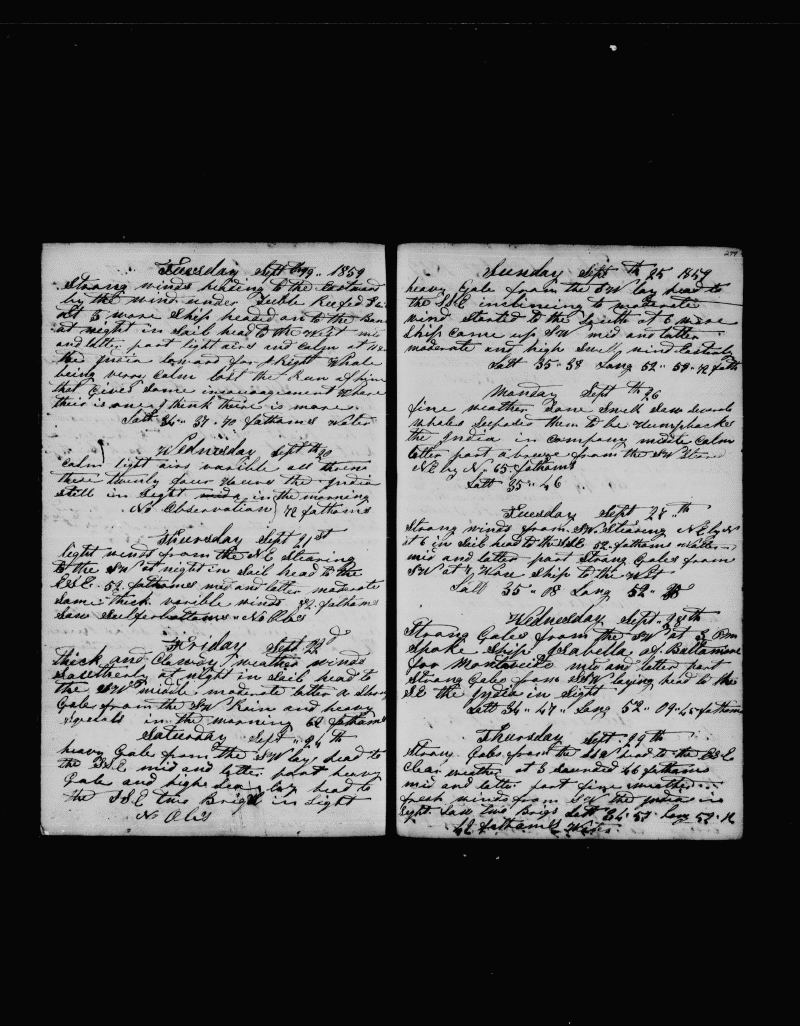 Tuesday Sept th 19 .. 1859
Strong winds heading to the Eastward
by the wind under Duble Reefed
at 5 wore Ship headed on to the Bank
at night in Sail head to the West mid
and latter part light airs and Calm at
the India lowered for a Right Whale
being very Calm lost the Run of him
that Gives Some incouragement Where
their is one I think their is more
Latt 34 " 37 . 70 fathoms Water
Wednesday Sept th 20
Calm light airs varible all threw
these twenty four Hours the India
Still in Sight in the morning
No Observation 72 fathoms
Thursday Sept 21 st
light winds from the NE Stearing
to the SW at night in Sail head to the
ESE . 52 fathoms mid and latter moderate
Some thick varible winds 82 fathoms
Saw Sulferbottoms " No Obs
Friday Sept 23 d
thick and Clowdy weather winds
Southerly at night in Sail head to
the SW midle moderate latter a Strong
Gales from the SW Rain and heavy
Squals in the morning 62 fathoms
Saturday Sept " 24 th
heavy Gale from the SW lay head to
the SSE mid and latter part heavy
Gale and high Sea lay head to
the SSE two Brigs in Sight
No Obs
Sunday Sept th 25 1859
heavy Gale from the SW lay head to
the SSE inclineing to moderate
wind Shifted to the South at 6 wore
Ship Came up SW mid and latter
moderate and high Swell wind Easterly
Latt 35 " 38 Long 52 " 58 " 72 fath
Monday Sept th 26
fine weather Saw Severals
Whales Seposed them to be Humpbacks
the India in Company midle Calm
latter part a breeze from the SW Steared
NE by N . 65 fathoms
Latt 35 " 46
Tuesday Sept 27 th
Strong winds from SW Stearing NE by N
at 6 in Sail head to the SSE 52 fathoms water
mid and latter part Strong Gales from
SW at 7 Wore Ship to the West
Latt 35 " 08 Long 52 "
Wednesday Sept . 28 th
Strong Gales from the SW at 3 Pm
Spoke Ship Isabella of Baltamore
for Montevido mid and latter part
Strong Gales from SSW laying head to the
SE the India in Sight
Latt 34 " 47 " Long 52 " 09 " 45 fathom
Thursday Sept . 29 th
Strong Gales from the SW head to the ESE
Clear weather at 5 Sounded 46 fathoms
mid and latter part fine weather
fresh winds from SW the India in
Sight Saw two Brigs Latt 34 . 57 . Long 52 . 12
62 fathoms Water